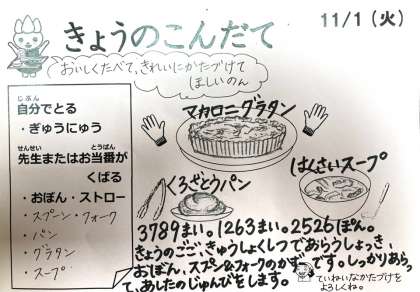 きょうのこんだて
11/1（火）
おいしくたべて、きれいにかたづけて
ほしいのん
じぶん
自分でとる
・ぎゅうにゅう
せんせい とうばん
先生またはお当番が
くばる
・おぼん・ストロー
・スプーン・フォーク
・パン
・グラタン
・スープ
マカロニグラタン
くろざとうパン
はくさいスープ
3789まい。1263まい。2526ぽん。
きょうのごご、きゅうしょくしつであらうしょっき、
おぼん、スプン&フォークのかずです。しっかりあらっ
て、あしたのじゅんびをします。
ていねいなかたづけを
よろしくね。